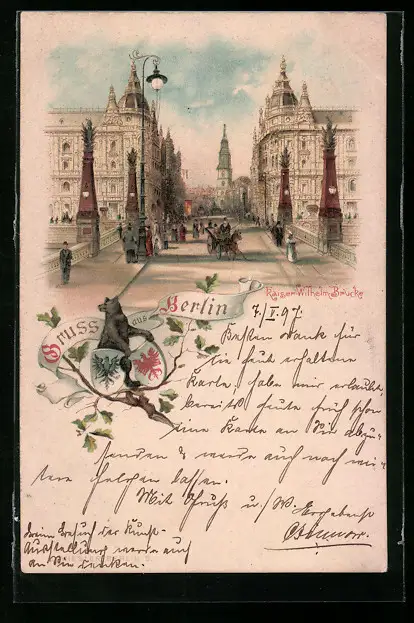 Kaiser Wilhelm Brücke
Gruss aus Berlin
7./V. 97.
Besten Dank für
die heut erhaltene
Karte, habe mir erlaubt,
bereits heute früh schon
eine Karte an Sie abzu-
senden & werde auch noch wei-
tere folgen lassen.
Mit Gruß u. Ergebenst
Beim Besuch der Kunst-
Ausstellung werde auch
an Sie denken.